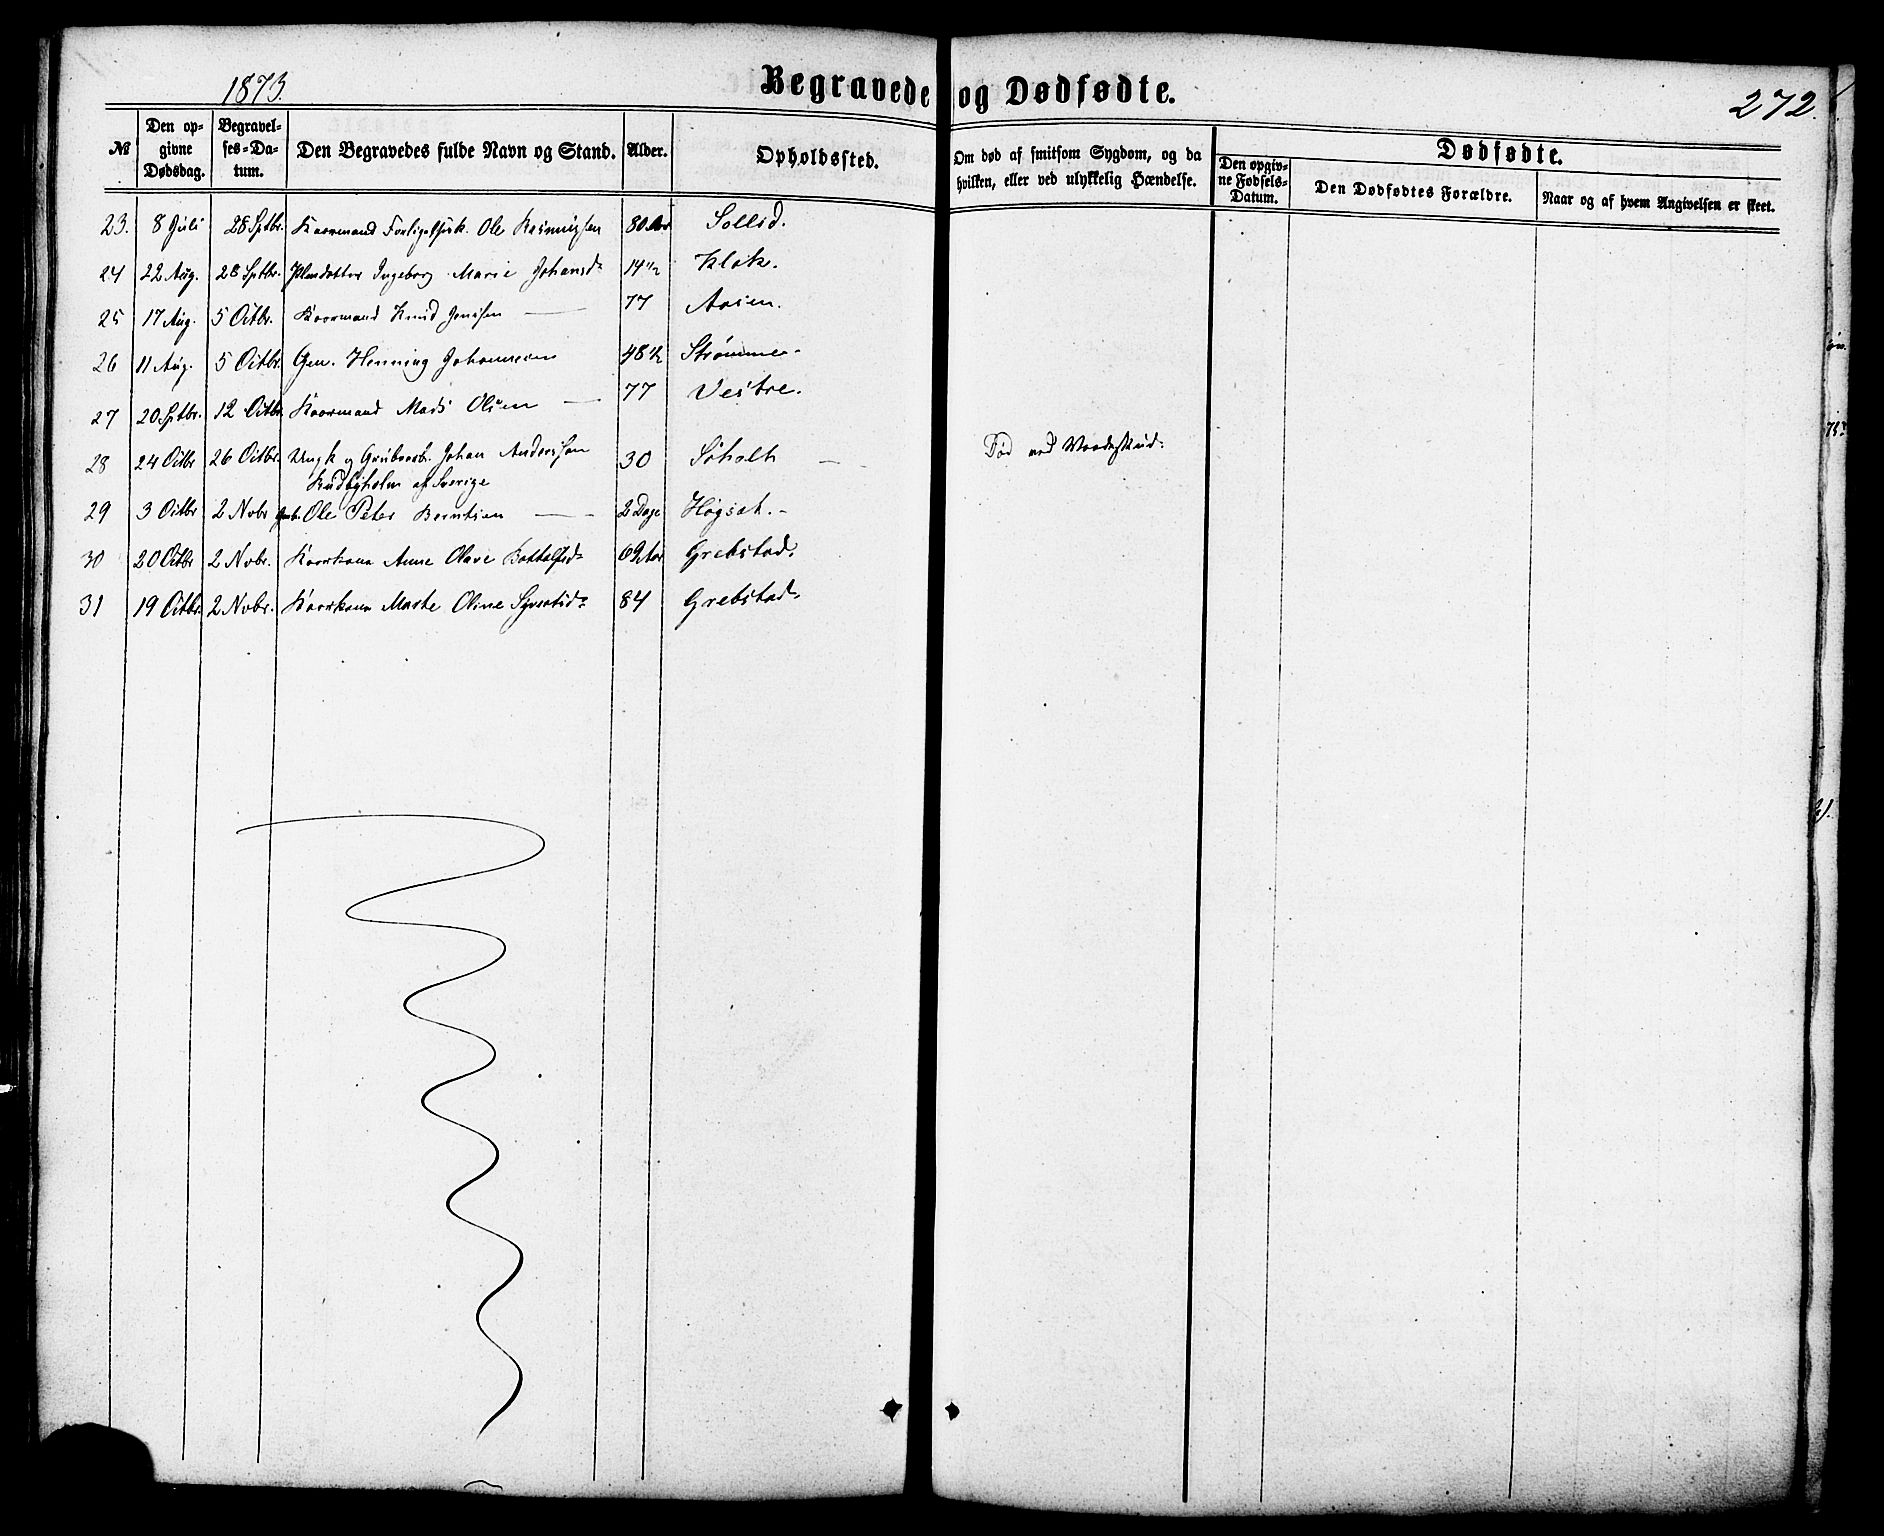 1873.
Begravede og Dødfødte.
272.
№
Den opgivne Dødsdag.
Begravelses-Datum.
Den Begravedes fulde Navn og Stand.
Alder.
Opholdssted.
Om død af smitsom Sygdom, og da hvilken, eller ved ulykkelig Hændelse.
Dødfødte.
Den opgivne Fødsels-Datum.
Den Dødfødtes Forældre.
Naar og af hvem Angivelsen er skeet.
23. 8 Juli 28 Sptbr. Kaarmand Ole Rasmussen 80 Aar Sollid.
24 22 Aug. 28 Sptbr. Ingeborg Marie Johansd: 14 1/2 Klok.
25 17 Aug. 5 Octbr. Kaarmand Knud Jensen — 77 Aasen.
26 11 Aug. 5 Octbr. Henning Johannesen 48 1/2 Strømme.
27 20 Sptbr. 12 Octbr. Kaarmand Mads Olsen — 77 Vestre.
28 24 Octbr 26 Octbr. Ungk. og Grubearb. Johan Anderssen 30 Søholt — Død ved Vaadeskud.
af Sverige
29 3 Octbr 2 Nvbr Ole Peter Berntsen — 2 Dage
30 20 Octbr 2 Nvbr. Kaarkone Anne Olave 69 Aar Grebstad.
31 19 Octbr. 2 Nvbr. Kaarkone Marte Oline Syvertsd: 84 Grebstad.